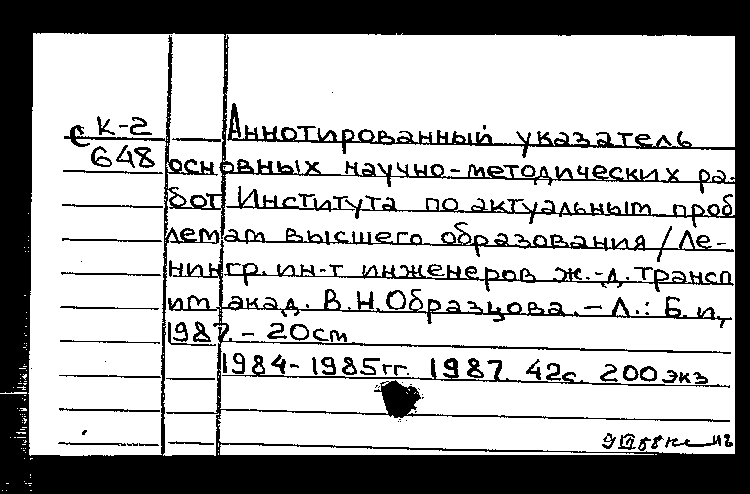 С К-2
648
Аннотированный указатель
основных научно-методических ра-
бот Института по актуальным проб
лемам высшего образования / Ле-
нингр. ин-т инженеров ж.-д. трансп
им акад. В.Н.Образцова. – Л.: Б. и.,
1987. – 20см
1984-1985гг. 1987. 42с. 200экз